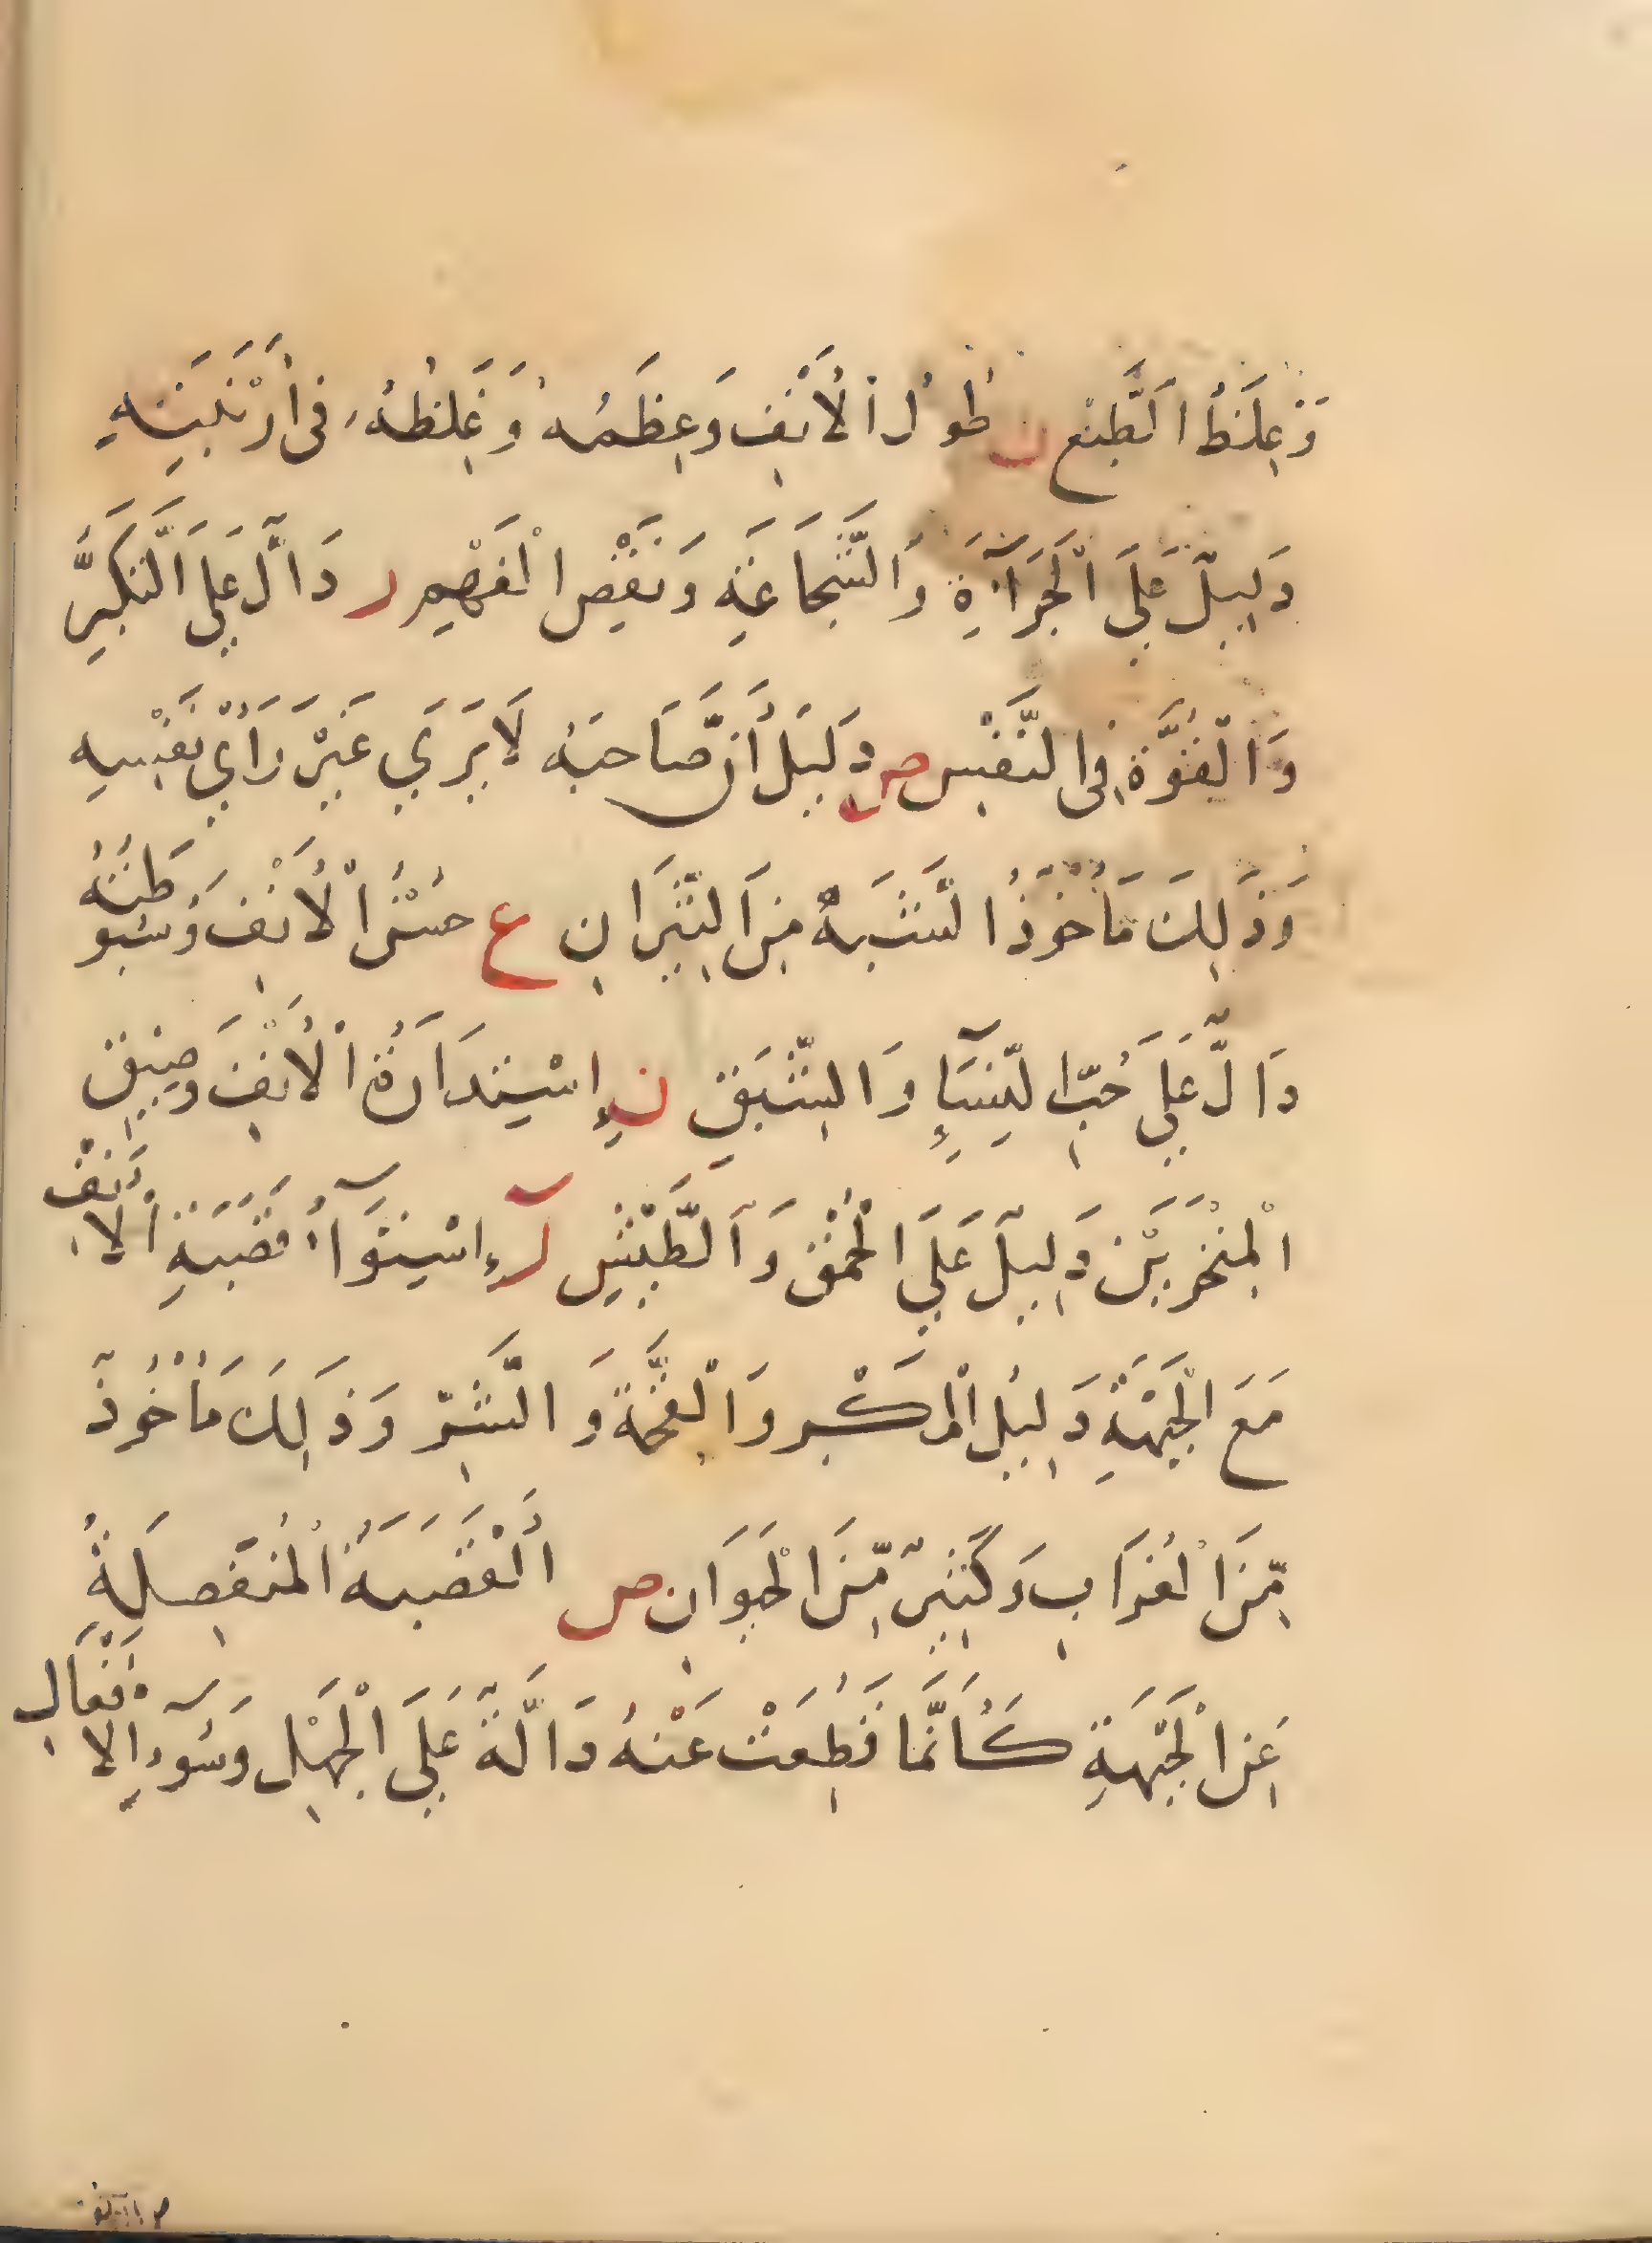 وَغِلَظُ الطَّبْعِ ن طُولُ الْأَنْفِ وَعِظَمُهُ وَغِلَظُهُ فِى أَرْنَبَتِهِ
دَلِيلٌ عَلَي الْجَرَآءَةِ وَالشَّجَاعَةِ وَنَقْصِ الْفَهْمِ ر دَآلٌّ عَلَي التَّكَبُّرِ
وَالْقُوَّةِ فِى النَّفْسِ ص دَلِيلُ أَنَّ صَاحِبَهُ لَا يَرَي غَيْرَ رَأْيِ نَفْسِهِ
وَذَلِكَ مَأْخُوذُ الشَّبَهِ مِنَ الثِّيرَانِ ع حُسْنُ الْأَنْفِ وَسُبُوطَتُهُ
دَالٌّ عَلَي حُبِّ النِّسَآءِ وَالشَّبَقِ ن إِسْتِدَارَةُ الْأَنْفِ وَضِيقِ
الْمِنْخَرَيْنِ دَلِيلٌ عَلَي الْحُمْقِ وَالطَّيْشِ لآ إِسْتِوَآءُ قَصَبَةِ الْأَنْفِ
مَعَ الْجَبْهَةِ دَلِيلُ الْمَكْرِ وَالْقِحَةِ وَالشَّرِّ وَذَلِكَ مَأْخُوذٌ
مِّنَ الْغُرَابِ وَكَثِيرٍ مِّنَ الْحَيَوَانِ ص أَلْقَصَبَةُ الْمُنْفَصِلَةُ
عَنِ الْجَبْهَةِ كَأَنَّمَا قُطِعَتْ عَنْهُ دَالَّةٌ عَلَي الْجَهْلِ وَسُوءِ الْأَفْعَالِ